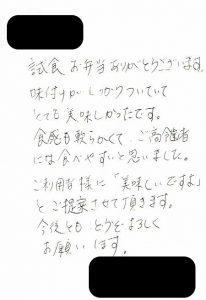 試食お弁当ありがとうございます。
味付けがしっかりついていて
とても美味しかったです。
食感も軟らかくて ご高齢者
には食べやすいと思いました。
ご利用者様に「美味しいですよ」
とご提案させて頂きます。
今後とも どうぞよろしく
お願いします。